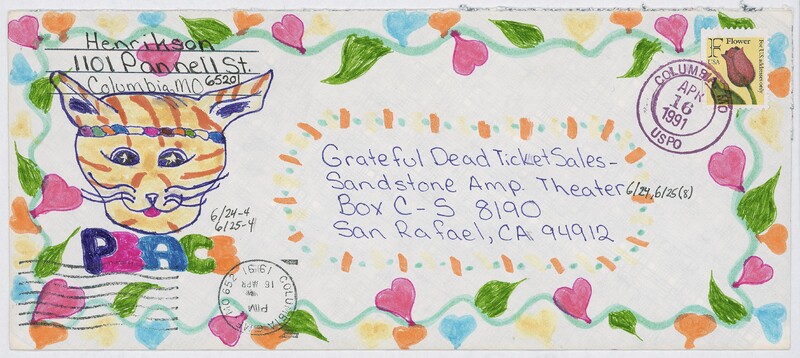 Henrikson
1101 Pannell St.
Columbia, MO 65201
F Flower
USA
For U.S. addresses only
COLUMBIA MO
APR
16
1991
USPO
Grateful Dead Ticket Sales-
Sandstone Amp. Theater 6/24, 6/25 (8)
Box C-S 8190
San Rafael, CA 94912
6/24-4
6/25-4
PEACE
COLUMBIA MO 652
PM
16 APR
1991